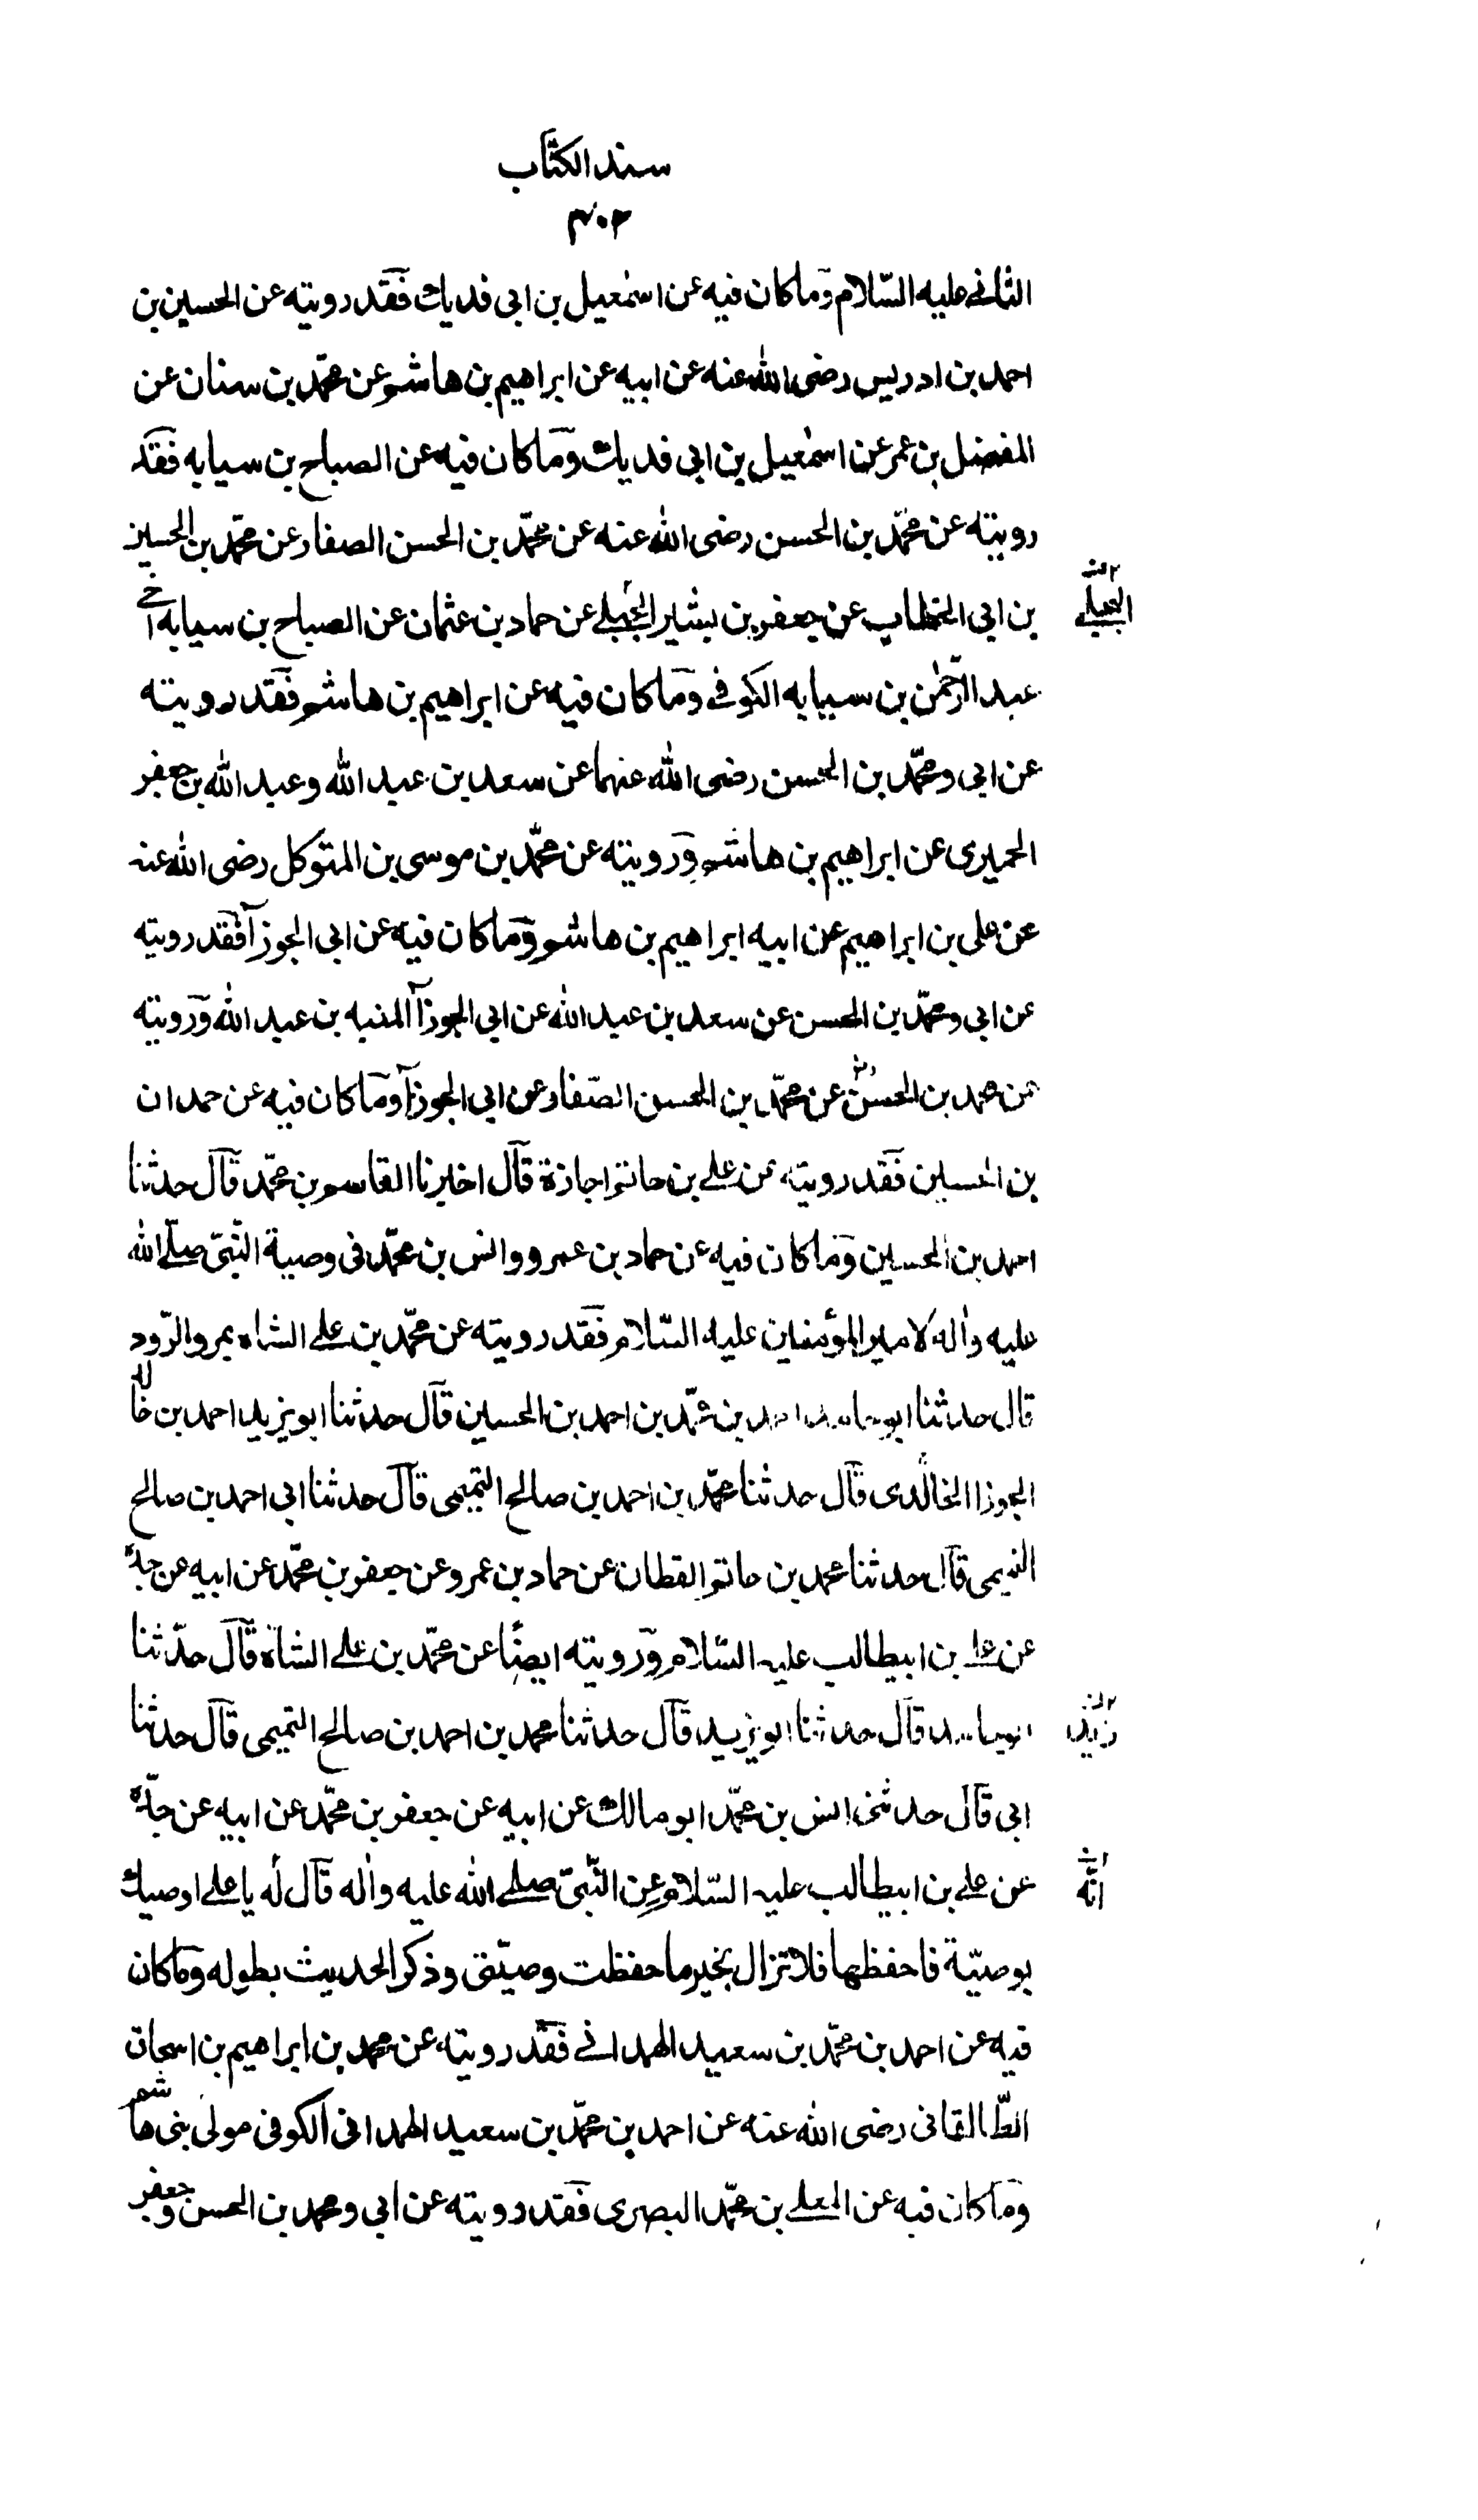 سند الكتاب
٤٠٢
الثانى عليه السّلام وَما كان فيه عن اسمٰعيل بن ابى فديك فَقَد رويته عن الحسين بن
احمد بن ادريس رضى الله عنه عن ابيه عن ابراهيم بن هاشم عن محمّد بن سنان عن
المفضل بن عمر عن اسمٰعيل بن ابى فديك وَمَا كان فيه عن الصباح بن سيابه فَقَد
رويته عن محمّد بن الحسن رضى الله عنه عن محمّد بن الحسن الصفار عن محمّد بن الحسين
بن ابى الخطاب عن جعفر بن بشير البجلے عن حماد بن عثمان عن الصباح بن سيابه اخے
عبد الرّحمٰن بن سيابه الكوفے وَمَا كان فيه عن ابراهيم بن هاشم فَقَد رويته
عن ابى ومحمّد بن الحسن رضى الله عنهما عن سعد بن عبد الله وعبد الله بن جعفر
الحميرى عن ابراهيم بن هاشم وَرويته عن محمّد بن موسى بن المتوكل رضى الله عنه
عن على بن ابراهيم عن ابيه ابراهيم بن هاشم وَمَا كان فيه عن ابى الجوزآ فَقَد رويته
عن ابى ومحمّد بن الحسن عن سعد بن عبد الله عن ابى الجوزآ المنبه بن عبد الله وَرويته
عن محمد بن الحسن رض عن محمّد بن الحسن الصّفار عن ابى الجوزآ وَمَا كان فيه عن حمدان
بن الحسين فَقَد رويته عن علے بن حاتم اجازة قَالَ اخبرنا القاسم بن محمّد قَالَ حدثنا
احمد بن الحسين وَمَا كان فيه عن حماد بن عمرو وانس بن محمّد فى وصية النّبىّ صلّے الله
عليه واٰله لامير المؤمنين عليه السّلام فَقَد رويته عن محمّد بن علے الشاه بمرو الرّود
قال حدثنا ابو حامد احمد بن محمّد بن احمد بن الحسين قَالَ حدثنا ابو يزيد احمد بن خالد
الجوزا الخالدى قَالَ حدثنا محمّد بن احمد بن صالح التميمى قَالَ حدثنا ابى احمد بن صالح
التميمى قَالَ حدثنا محمد بن حاتم القطان عن حماد بن عمرو عن جعفر بن محمّد عن ابيه عن جدّه
عن علے بن ابيطالب عليه السّلام وَرويته ايضًا عن محمّد بن علے الشاة قَالَ حدّثنا
ابو حامد قَالَ حدثنا ابو يزيد قَالَ حدثنا محمد بن احمد بن صالح التميمى قَالَ حدثنا
ابى قَالَ حدثنى انس بن محمّد ابو مالك عن ابيه عن جعفر بن محمّد عن ابيه عن جدّه
عن علے بن ابيطالب عليه السّلام عن النّبىّ صلے الله عليه واٰله قَالَ لَه يا علے اوصيك
بوصيّة فاحفظها فلا تزال بخير ما حفظت وصيّتى وذكر الحديث بطوله وَمَا كان
فيه عن احمد بن محمّد بن سعيد الهمدانے فَقَد رويته عن محمد بن ابراهيم بن اسحاق
الطّالقانى رضى الله عنه عن احمد بن محمّد بن سعيد الهمدانى الكوفى مولى بنى هاشم
وَمَا كان فيه عن المعلے بن محمّد البصرى فَقَد رويته عن ابى ومحمد بن الحسن وجعفر
زيد
انّه